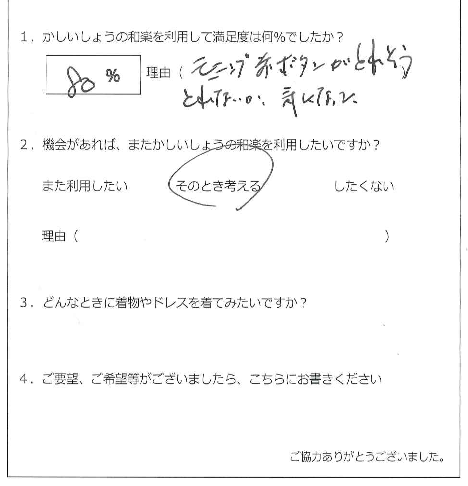 1．かしいしょうの和楽を利用して満足度は何％でしたか？
80 % 理由（ モーニング 赤ボタンがとれそう
とれないか、気になった
2．機会があれば、またかしいしょうの和楽を利用したいですか？
また利用したい そのとき考える したくない
理由（ ）
3．どんなときに着物やドレスを着てみたいですか？
4．ご要望、ご希望等がございましたら、こちらにお書きください
ご協力ありがとうございました。